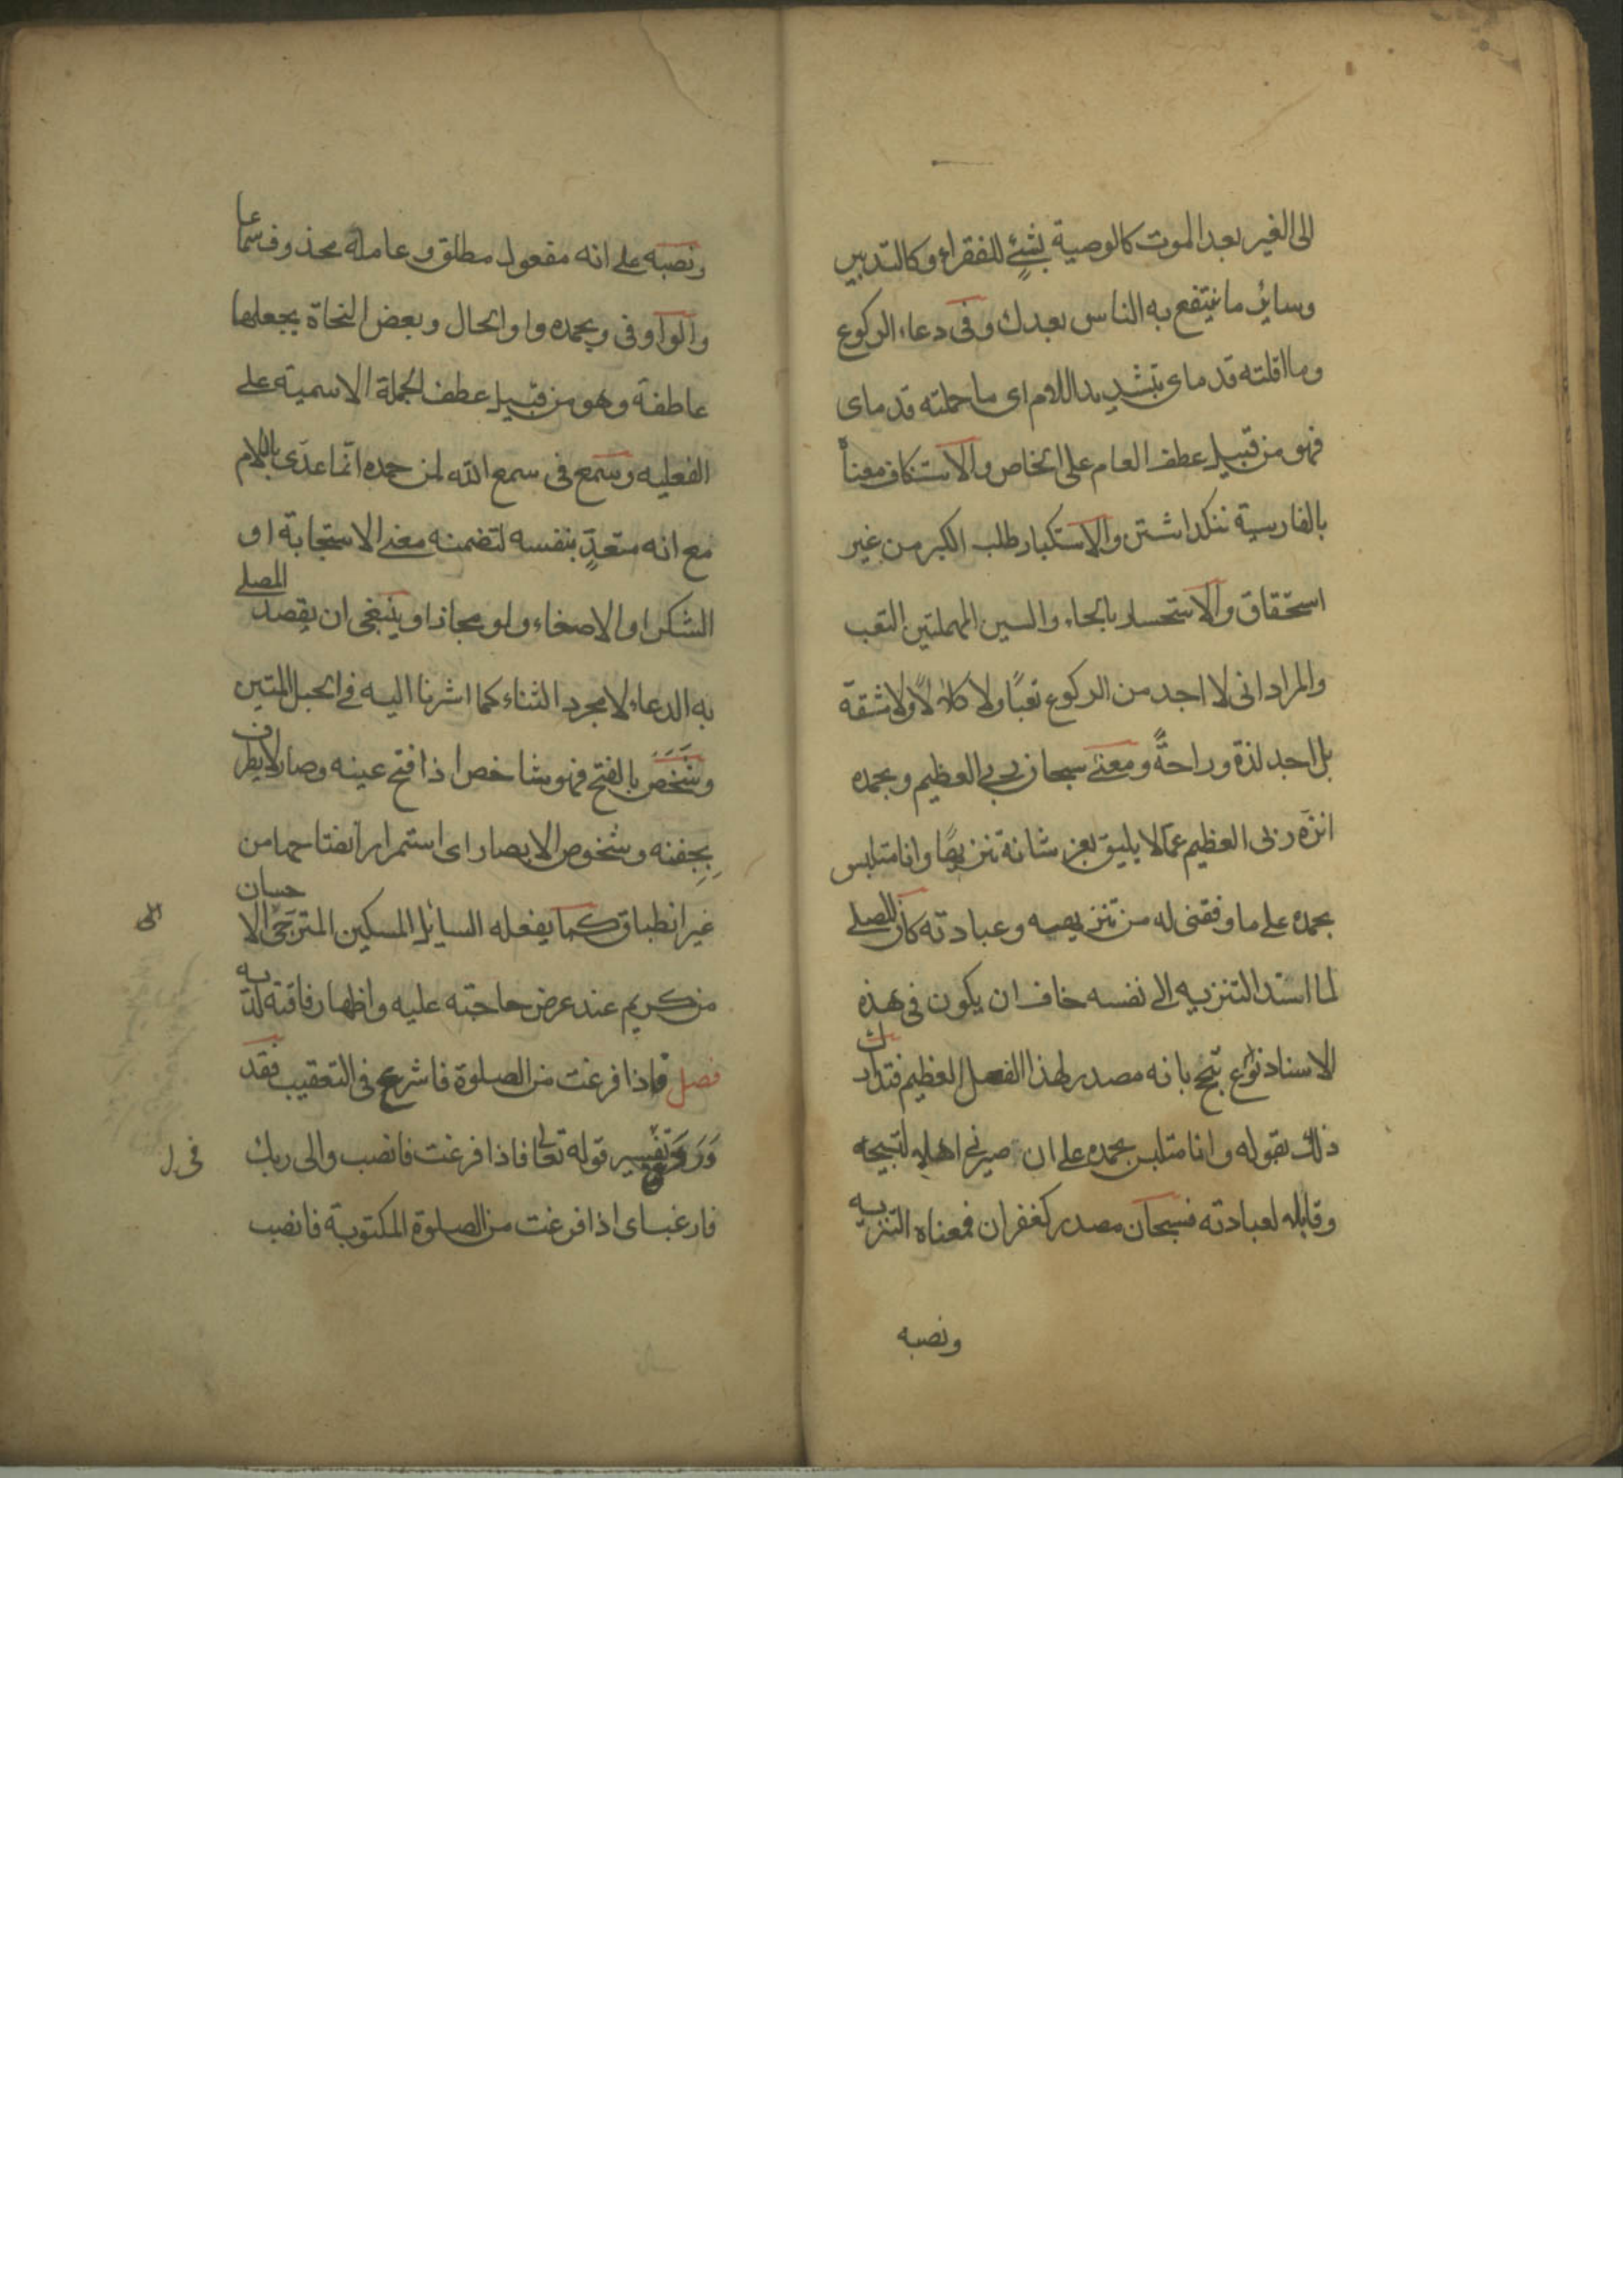 الى الغير بعد الموت كالوصية بشئ للفقراء وكالتدبير
وساير ما ينتفع به الناس بعدك وفى دعاء الركوع
وما اقلته قدماى بتشديد اللام اى ما حملته قدماى
فهو من قبيل عطف العام على الخاص والاستنكاف معناه
بالفارسية ننك داشتن والاستكبار طلب الكبر من غير
استحقاق والاستحسار بالحاء والسين المهملتين التعب
والمراد انى لا اجد من الركوع تعبًا ولا كلالًا ولا مشقة
بل اجد لذة وراحةً ومعنى سبحان ربى العظيم وبحمده
انزه ربى العظيم عما لا يليق بعز شانه تنزيهًا وانا متلبس
بحمده على ما وفقنى له من تنزيهه وعبادته كان المصلى
لما اسند التنزيه الى نفسه خاف ان يكون فى هذه
الاسناد نوع تبجح بانه مصدر لهذا الفعل العظيم فتدارك
ذلك بقوله وانا متلبس بحمده على ان صيرنى اهلا لتسبيحه
وقابلا لعبادته فسبحان مصدر كغفران فمعناه التنزيه
ونصبه
ونصبه على انه مفعول مطلق وعامله محذوف سماعا
والواو فى وبحمده واو الحال وبعض النحاة يجعلها
عاطفة وهو من قبيل عطف الجملة الاسمية على
الفعليه وسمع فى سمع الله لمن حمده انما عدّى باللام
مع انه متعدٍّ بنفسه لتضمنه معنى الاستجابة او
الشكر او الاصغاء ولو مجازا وينبغى ان يقصد المصلى
به الدعاء لا مجرد الثناء كما اشرنا اليه فى الحبل المتين
وشَخَصَ بالفتح فهو شاخص اذا فتح عينه وصار لا يطرف
بِجِفنه وشخوص الابصار اى استمرار انفتاحها من
غير انطباق كما يفعله السايل المسكين المترجى الاحسان
الى
من كريم عند عرض حاجته عليه واظهار فاقته لديه
فصل فاذا فرغت من الصلوة فاشرع فى التعقيب فقد
وَرَدَ تفسير قوله تعالى فاذا فرغت فانصب والى ربك
فى
فارغب اى اذا فرغت من الصلوة المكتوبة فانصب